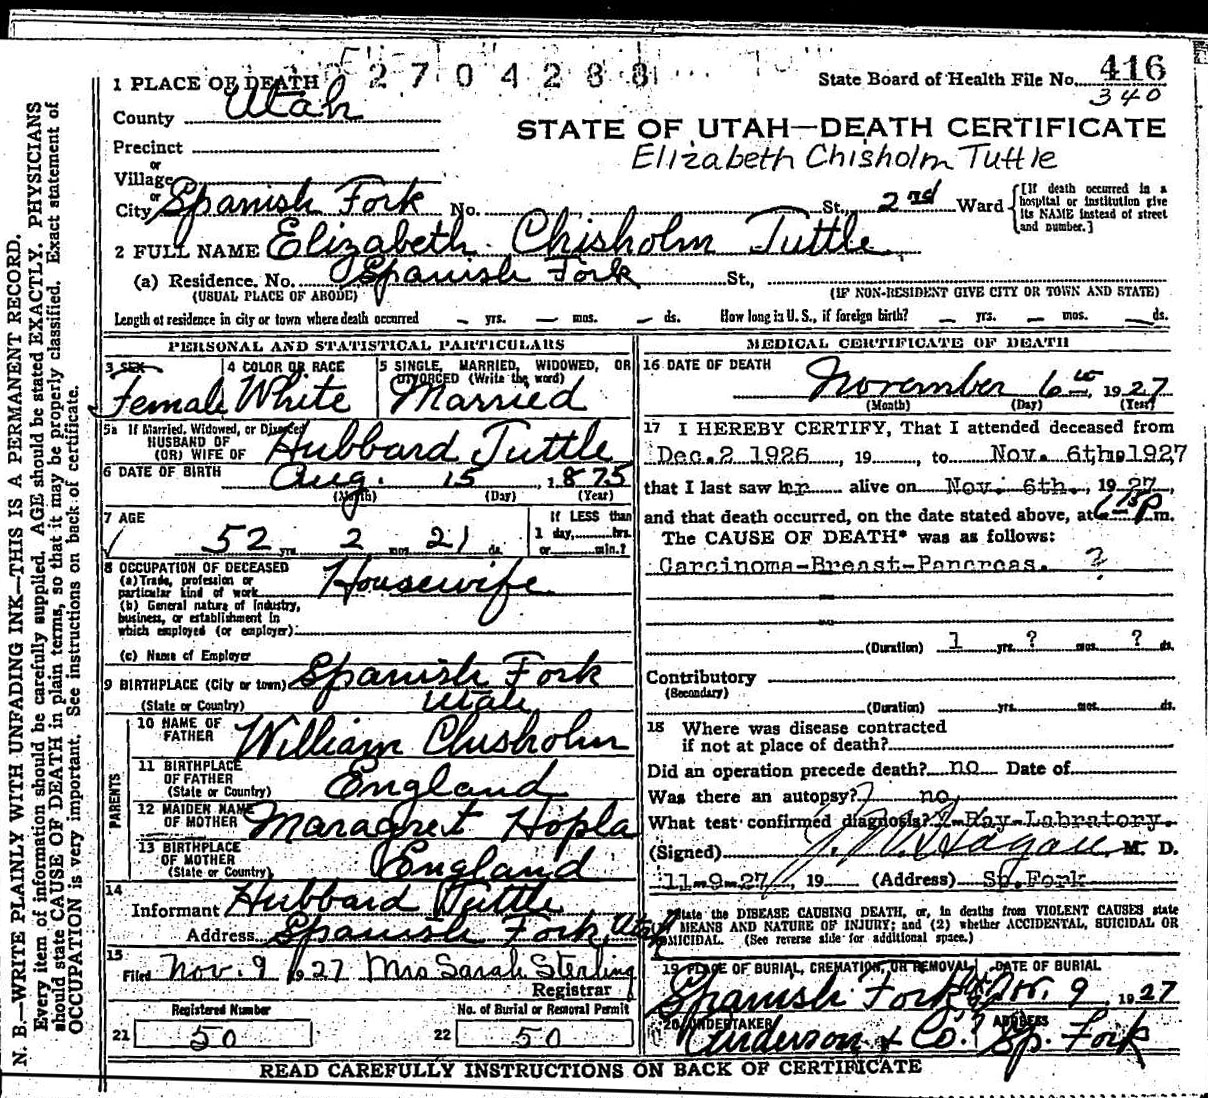 2704288
State Board of Health File No. 416
340
1 PLACE OF DEATH
County Utah
STATE OF UTAH—DEATH CERTIFICATE
Precinct
Elizabeth Chisholm Tuttle
or
Village
or
City Spanish Fork No. St. 2nd Ward
[If death occurred in a
hospital or institution give
its NAME instead of street
and number.]
2 FULL NAME Elizabeth Chisholm Tuttle
(a) Residence. No. Spanish Fork St.,
(USUAL PLACE OF ABODE) (IF NON-RESIDENT GIVE CITY OR TOWN AND STATE)
Length of residence in city or town where death occurred — yrs. — mos. — ds. How long in U. S., if foreign birth? — yrs. — mos. — ds.
PERSONAL AND STATISTICAL PARTICULARS
3 SEX 4 COLOR OR RACE 5 SINGLE, MARRIED, WIDOWED, OR
DIVORCED (Write the word)
Female White Married
5a If Married, Widowed, or Divorced
HUSBAND OF
(OR) WIFE OF Hubbard Tuttle
6 DATE OF BIRTH Aug. 15, 1875
(Month) (Day) (Year)
7 AGE If LESS than
52 yrs. 2 mos. 21 ds. 1 day, hrs.
or min.?
8 OCCUPATION OF DECEASED
(a) Trade, profession or
particular kind of work Housewife
(b) General nature of industry,
business, or establishment in
which employed (or employer)
(c) Name of Employer
9 BIRTHPLACE (City or town) Spanish Fork
(State or Country) Utah
10 NAME OF
FATHER William Chisholm
11 BIRTHPLACE
OF FATHER
(State or Country) England
12 MAIDEN NAME
OF MOTHER Maragret Hopla
13 BIRTHPLACE
OF MOTHER
(State or Country) England
PARENTS
14
Informant Hubbard Tuttle
Address Spanish Fork, Utah
15
Filed Nov. 9 1927 Mrs Sarah Sterling
Registrar
Registered Number No. of Burial or Removal Permit
21 50 22 50
MEDICAL CERTIFICATE OF DEATH
16 DATE OF DEATH
November 6th, 1927
(Month) (Day) (Year)
17 I HEREBY CERTIFY, That I attended deceased from
Dec. 2 1926, 19, to Nov. 6th. 1927
that I last saw her alive on Nov. 6th., 1927,
and that death occurred, on the date stated above, at 6 15 P m.
The CAUSE OF DEATH* was as follows:
Carcinoma-Breast-Pancreas. ?
(Duration) 1 yrs. ? mos. ? ds.
Contributory
(Secondary)
(Duration) yrs. mos. ds.
18 Where was disease contracted
if not at place of death?
Did an operation precede death? no Date of
Was there an autopsy? no
What test confirmed diagnosis? X-Ray-Labratory.
(Signed) J. W. Hagan, M. D.
11-9-27, 19 (Address) Sp. Fork
*State the DISEASE CAUSING DEATH, or, in deaths from VIOLENT CAUSES state
MEANS AND NATURE OF INJURY; and (2) whether ACCIDENTAL, SUICIDAL OR
HOMICIDAL. (See reverse side for additional space.)
19 PLACE OF BURIAL, CREMATION, OR REMOVAL DATE OF BURIAL
Spanish Fork Nov. 9, 1927
20 UNDERTAKER ADDRESS
Anderson & Co. Sp. Fork
READ CAREFULLY INSTRUCTIONS ON BACK OF CERTIFICATE
N. B.—WRITE PLAINLY WITH UNFADING INK—THIS IS A PERMANENT RECORD.
Every item of information should be carefully supplied. AGE should be stated EXACTLY. PHYSICIANS
should state CAUSE OF DEATH in plain terms, so that it may be properly classified. Exact statement of
OCCUPATION is very important. See instructions on back of certificate.